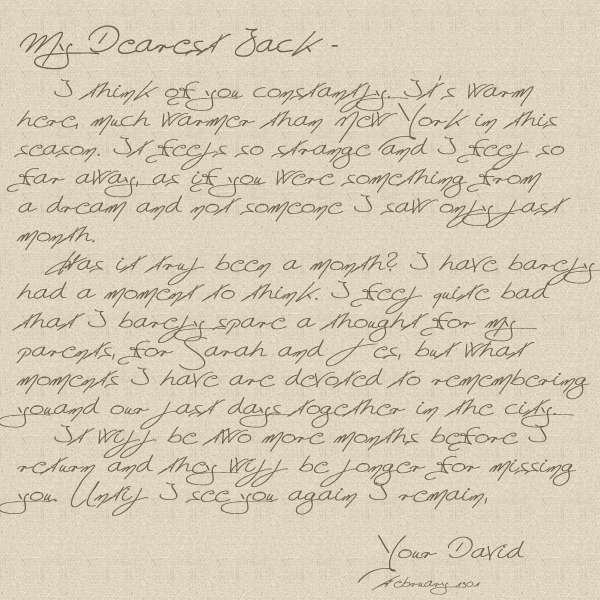 My Dearest Jack -
I think of you constantly. It's warm
here, much warmer than New York in this
season. It feels so strange and I feel so
far away, as if you were something from
a dream and not someone I saw only last
month.
Has it truly been a month? I have barely
had a moment to think. I feel quite bad
that I barely spare a thought for my
parents, for Sarah and Les, but what
moments I have are devoted to remembering
youand our last days together in the city.
It will be two more months before I
return and they will be longer for missing
you. Until I see you again I remain,
Your David
February 1901